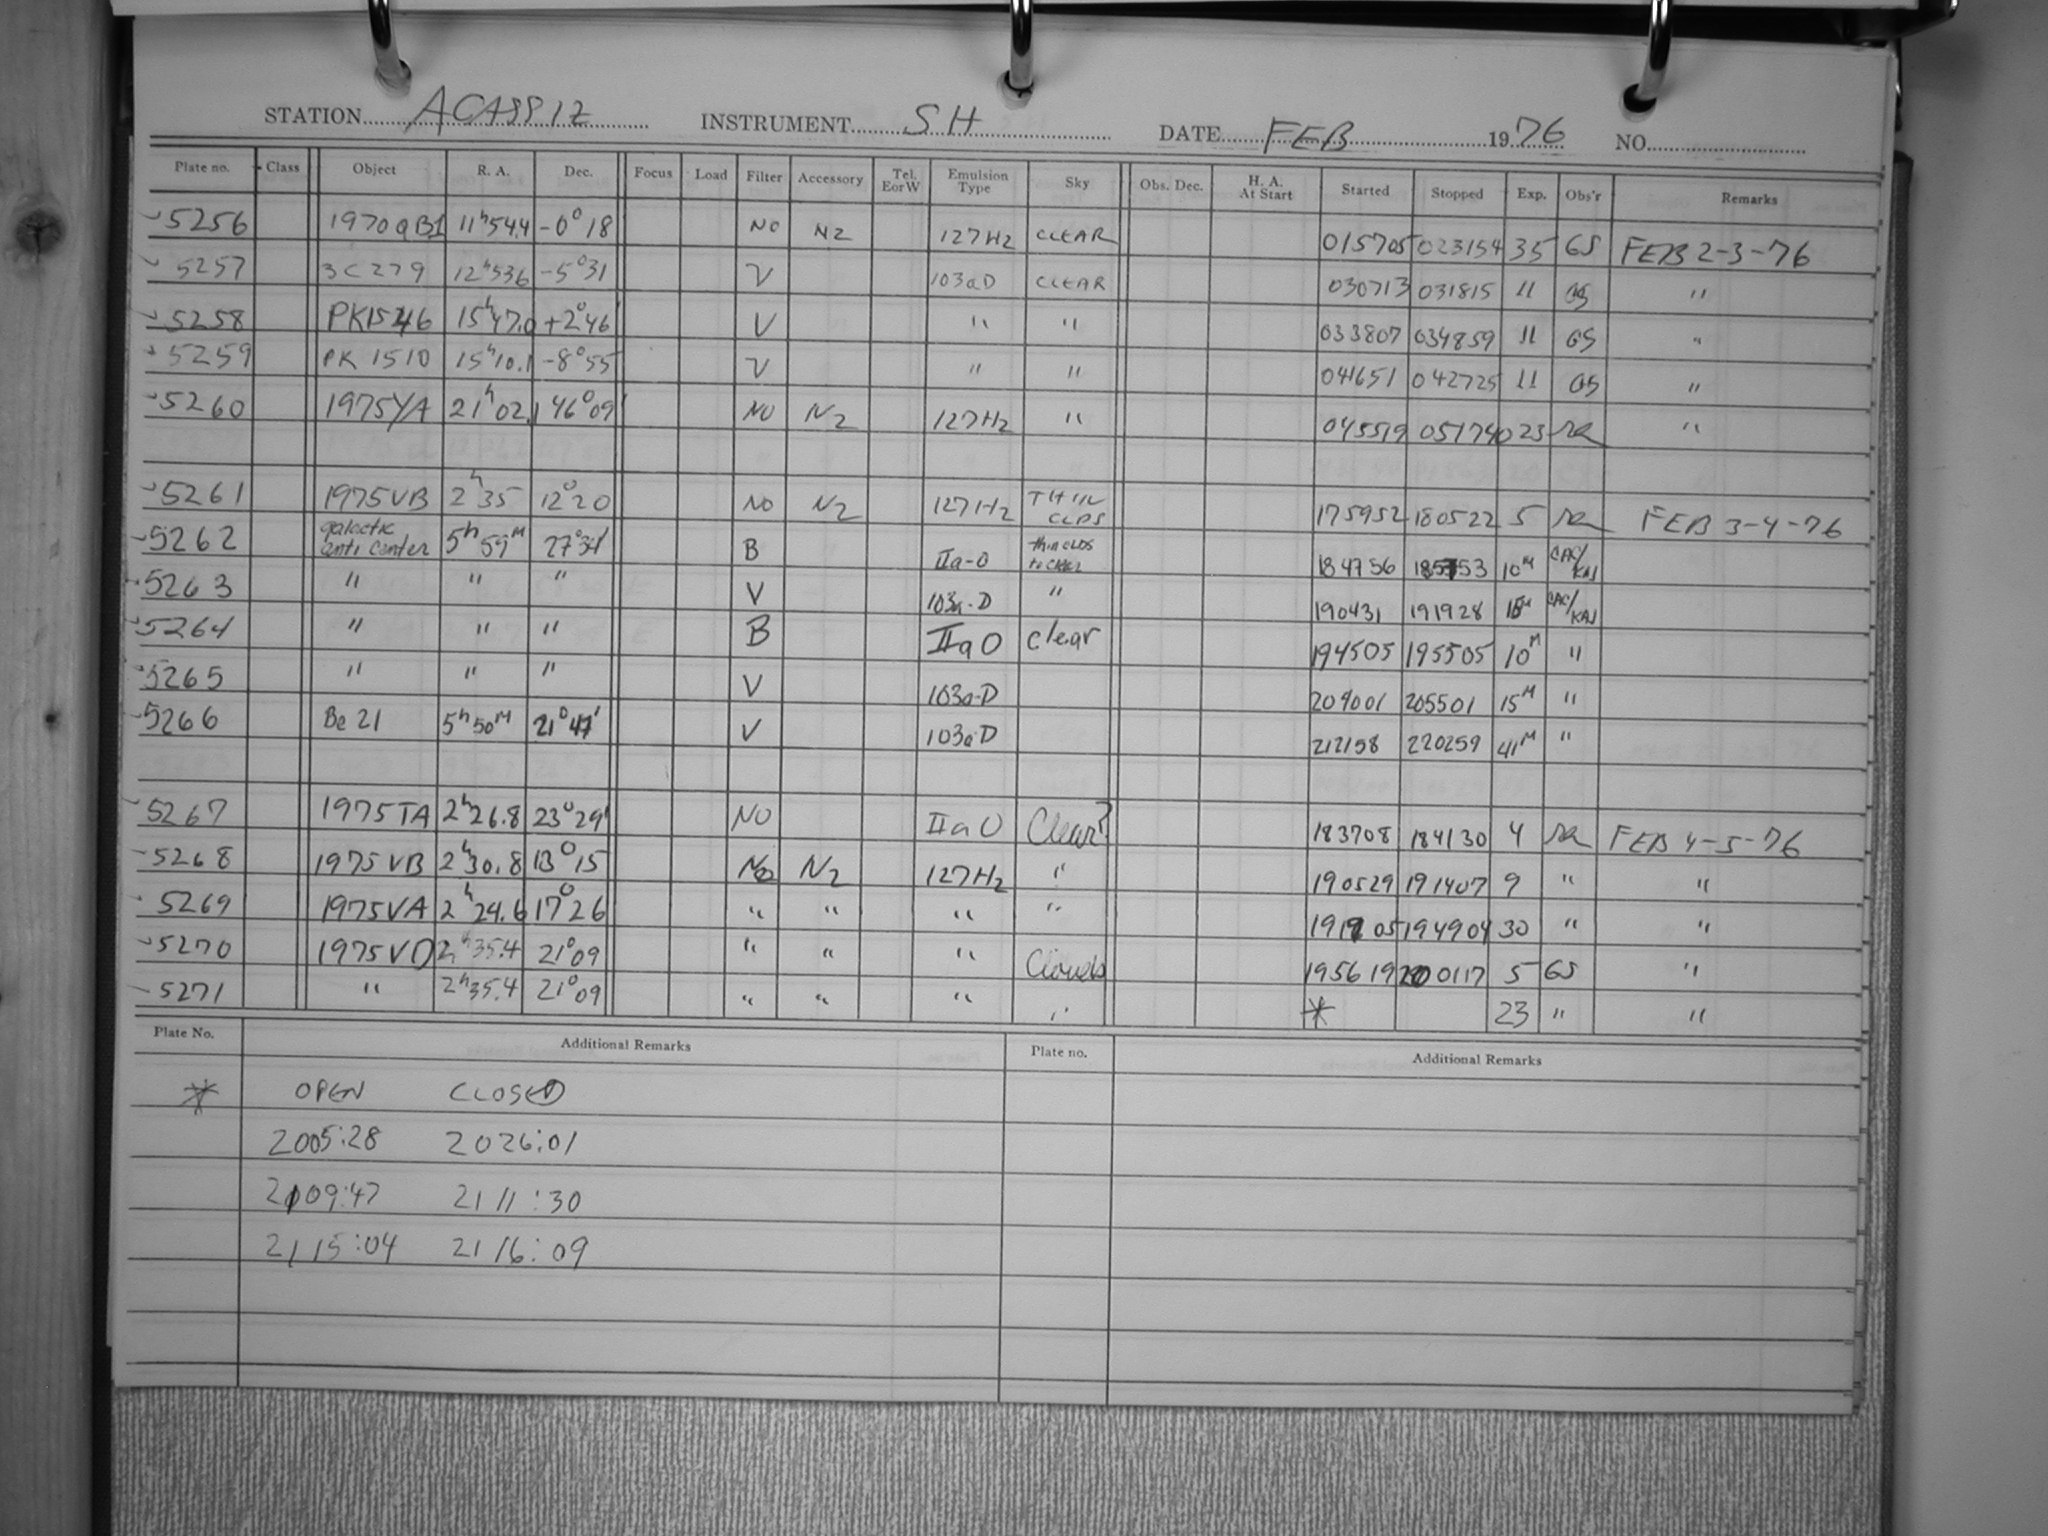 STATION ACASSIZ INSTRUMENT SH DATE FEB 1976 NO.
Plate no. Class Object R. A. Dec. Focus Load Filter Accessory Tel. E or W Emulsion Type Sky Obs. Dec. H. A. At Start Started Stopped Exp. Obs'r Remarks
5256 1970QB1 11h54.4 -0°18 NO N2 127H2 CLEAR 015705 023154 35 GS FEB 2-3-76
5257 3C279 12h536 -5°31 V 103aD CLEAR 030713 031815 11 GS "
5258 PK1546 15h47.0 +2°46' V " " 033807 034859 11 GS "
5259 PK 1510 15h10.1 -8°55 V " " 041651 042725 11 GS "
5260 1975YA 21h02.1 46°09' NO N2 127H2 " 045519 051740 23 "
5261 1975VB 2h35 12°20 NO N2 127H2 THIN CLDS 175952 180522 5 FEB 3-4-76
5262 galactic anti center 5h59M 27°34' B IIa-O thin CLDS to clear 184756 185753 10M CAC/KAJ
5263 " " " V 103a-D " 190431 191928 15M CAC/KAJ
5264 " " " B IIaO clear 194505 195505 10M "
5265 " " " V 103a-D 204001 205501 15M "
5266 Be 21 5h50M 21°47' V 103a-D 212158 220259 41M "
5267 1975TA 2h26.8 23°29' NO IIaO Clear? 183708 184130 4 FEB 4-5-76
5268 1975VB 2h30.8 13°15 No N2 127H2 " 190529 191407 9 " "
5269 1975VA 2h24.6 17°26 " " " " 191905 194904 30 " "
5270 1975VD 2h35.4 21°09 " " " Clouds 195619 200117 5 GS "
5271 " 2h35.4 21°09 " " " " * 23 " "
Plate No. Additional Remarks Plate no. Additional Remarks
* OPEN CLOSED
2005:28 2026:01
2109:47 2111:30
2115:04 2116:09